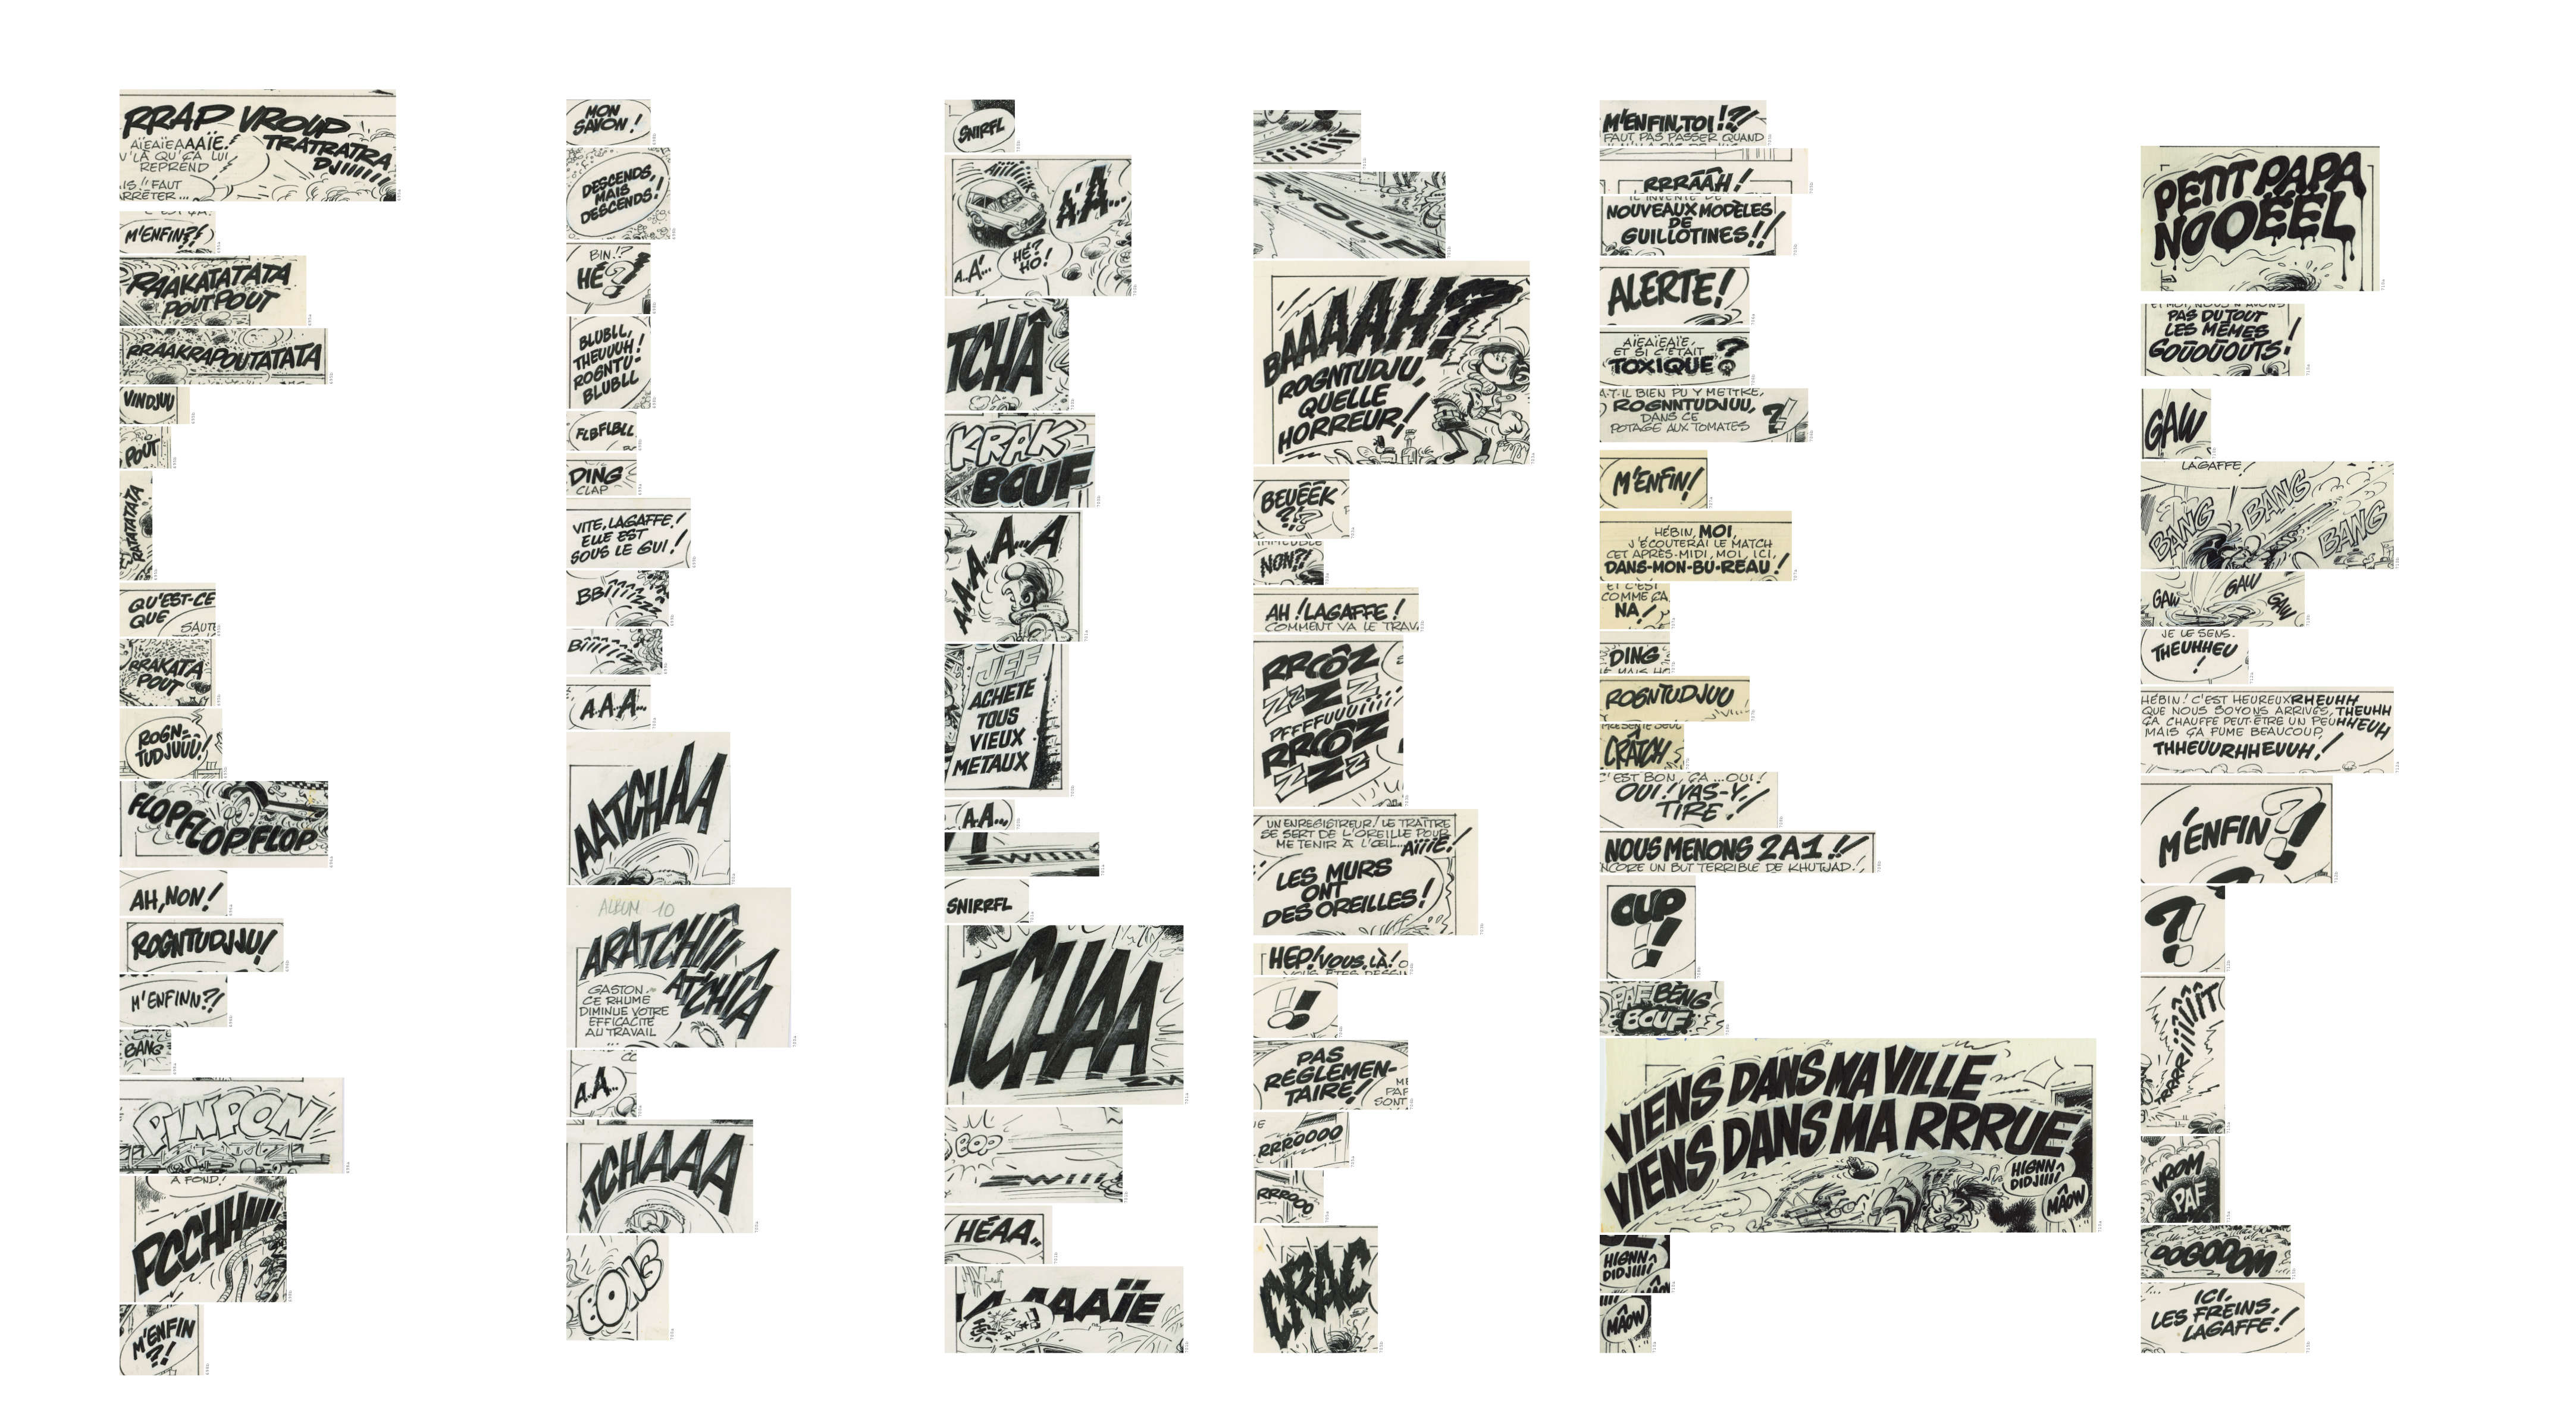 RRAP VROUP
TRATRATRA
DJIIIIII
AÏEAÏEAAAÏE!
V'LÀ QU'ÇA LUI
REPREND
IS!! FAUT
RRÊTER...
M'ENFIN?!
RAAKATATATA
POUTPOUT
RRAAKRAPOUTATATA
VINDJUU
POUT
RATATATATA
QU'EST-CE
QUE
SAUTE
RRAKATA
POUT
ROGN-
TUDJUUU!
FLOPFLOPFLOP
AH, NON!
ROGNTUDJJU!
M'ENFINN?!
BANG
PINPON
À FOND!
PCCHHHIII
M'ENFIN
?!
MON
SAVON!
DESCENDS,
MAIS
DESCENDS!
BIN!?
HÉ?!
BLUBLL,
THEUUUH!
ROGNTU-
BLUBLL
FLBFLBLL
DING
CLAP
VITE, LAGAFFE!
ELLE EST
SOUS LE GUI!
BBIIIIZZZ
BIIIIIZZ
A..A.A...
AATCHAA
ALBUM 10
ARATCHIIII
ATCHIA
GASTON..
CE RHUME
DIMINUE VOTRE
EFFICACITÉ
AU TRAVAIL
...
A..A...
TCHAAA
BONG
SNIRFL
AIIIIIIK
A'A...
A..A'...
HÉ?
HO!
TCHÂ
KRAK
BOUF
A..A..A...A
JEF
ACHETE
TOUS
VIEUX
METAUX
A.A...
ZWIIII
SNIRRFL
TCHAA
ZW
BOP
ZWIII
HÉAA..
AAAAÏE
ZWOUF
BAAAAH?
ROGNTUDJU,
QUELLE
HORREUR!
BEUÊÊK
?!?
NON?!
AH! LAGAFFE!
COMMENT VA LE TRAV
RRCÔZ
ZZZZ
PFFFFUUUIIII
RRCÔZ
ZZZ
UN ENREGISTREUR! LE TRAÎTRE
SE SERT DE L'OREILLE POUR
ME TENIR À L'ŒIL...
AÏÏÏE!
LES MURS
ONT
DES OREILLES!
HEP! VOUS, LÀ!
!!
PAS
RÉGLEMEN-
TAIRE!
RRROOOO
RRROOO
CRAC
M'ENFIN, TOI!?!
FAUT PAS PASSER QUAND
RRRÂÂH!
IL INVENTE DE
NOUVEAUX MODÈLES
DE
GUILLOTINES!!
ALERTE!
AÏEAÏEAÏE,
ET SI C'ÉTAIT
TOXIQUE?
A-T-IL BIEN PU Y METTRE,
ROGNNTUDJUU,
DANS CE
POTAGE AUX TOMATES
?!
M'ENFIN!
HÉBIN, MOI,
J'ÉCOUTERAI LE MATCH
CET APRÈS-MIDI, MOI, ICI,
DANS-MON-BU-REAU!
ET C'EST
COMME ÇA
NA!
DING
ROGNTUDJUU
CRÂTCH
C'EST BON, ÇA...OUI!
OUI! VAS-Y!
TIRE!
NOUS MENONS 2 A 1!!
NCORE UN BUT TERRIBLE DE KHUTJAD!
OUP
!!
PAF BÉNG
BOUF
VIENS DANS MA VILLE
VIENS DANS MA RRRUE
HIGNN
DIDJIIII
MÂOW
HIGNN
DIDJIIII
MÂOW
PETIT PAPA
NOOËËL
ET MOI, NOUS N'AVONS
PAS DU TOUT
LES MÊMES
GOÛOÛOÛTS!
GAW
LAGAFFE!
BANG BANG BANG
GAW GAW GAW
JE LE SENS.
THEUHHEU
!
HÉBIN! C'EST HEUREUX RHEUHH
QUE NOUS SOYONS ARRIVÉS, THEUHH
ÇA CHAUFFE PEUT-ÊTRE UN PEUHHEUH
MAIS ÇA FUME BEAUCOUP,
THHEUURHHEUUH!
M'ENFIN?!
?!
TRRRRIIIÎÎÎT
VROM
PAF
OOGODOM
ICI,
LES FREINS,
LAGAFFE!